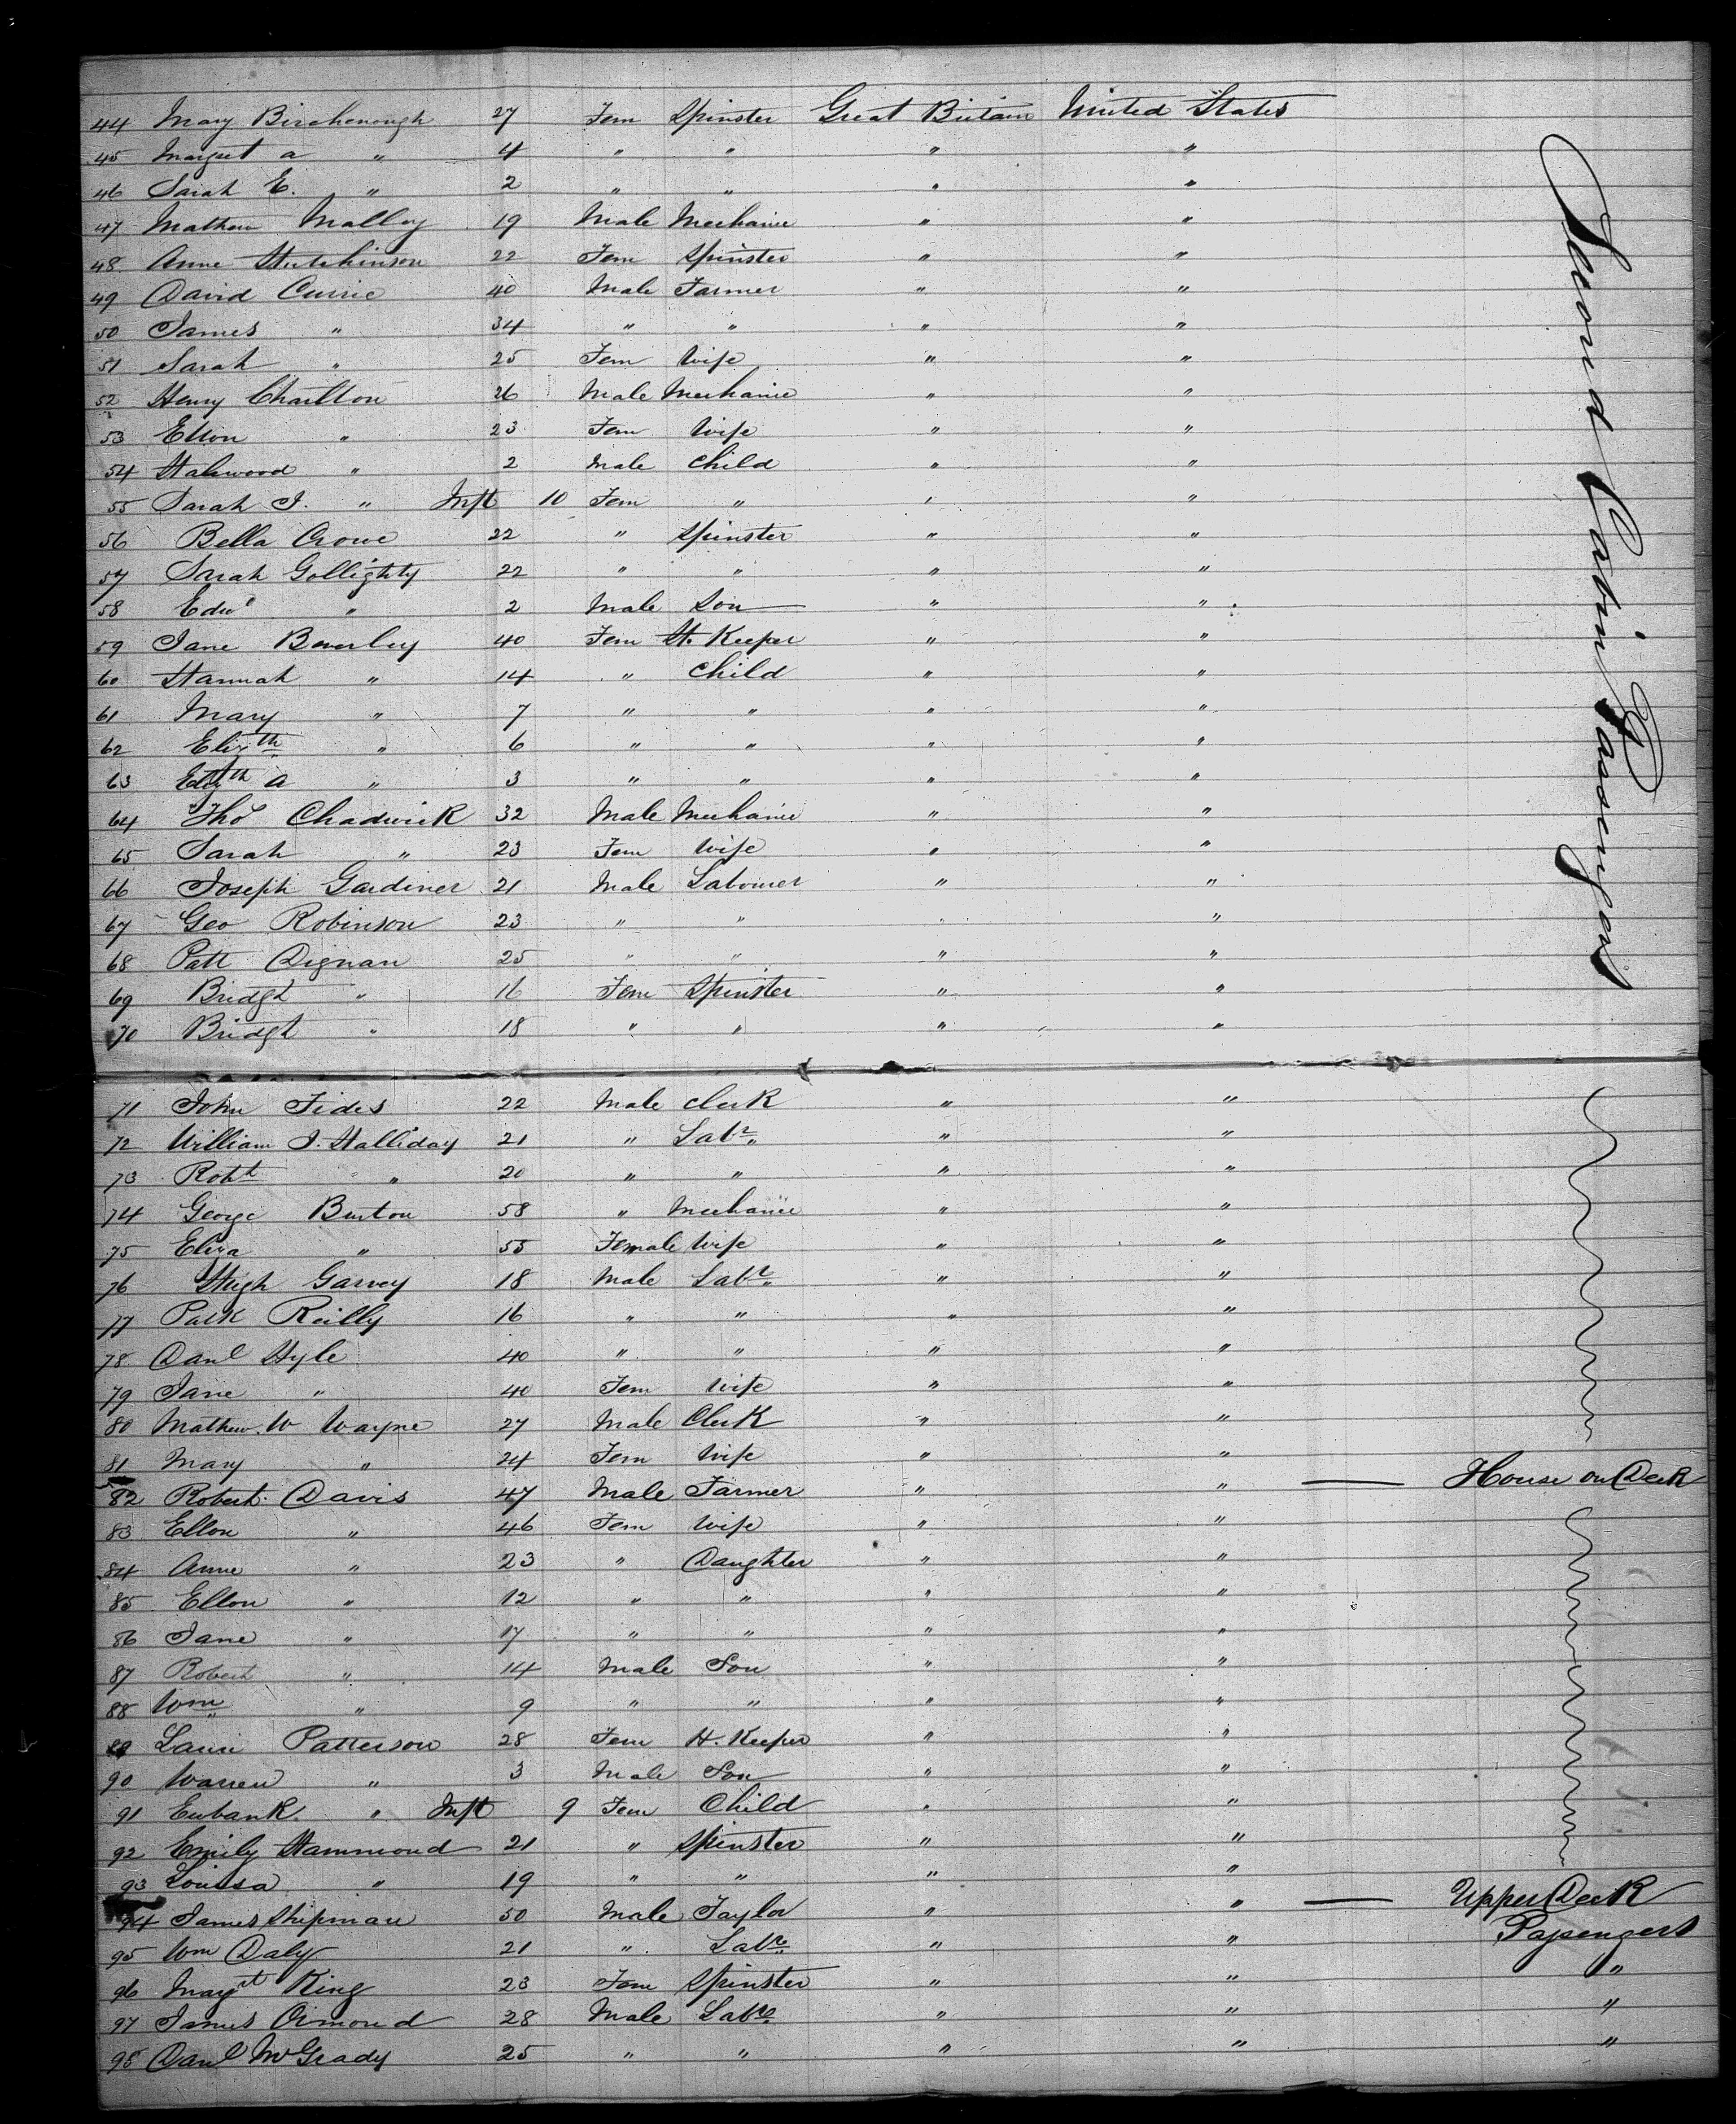 44 Mary Birchenough 27 Fem Spinster Great Britain United States
45 Margret a " 4 " " " "
46 Sarah E. " 2 " " " "
47 Mathew Malloy 19 Male Mechanic " "
48 Anne Hutchinson 22 Fem Spinster " "
49 David Currie 40 Male Farmer " "
50 James " 34 " " " "
51 Sarah " 25 Fem Wife " "
52 Henry Charlton 26 Male Mechanic " "
53 Ellon " 23 Fem Wife " "
54 " 2 Male Child " "
55 Sarah J. " Inft 10 Fem " " "
56 Bella Crowe 22 " Spinster " "
57 Sarah Gollightly 22 " " " "
58 Edwd " 2 Male Son " "
59 Jane Beverley 40 Fem H. Keeper " "
60 Hannah " 14 " Child " "
61 Mary " 7 " " " "
62 Elizth " 6 " " " "
63 a " 3 " " " "
64 Thos Chadwick 32 Male Mechanic " "
65 Sarah " 23 Fem Wife " "
66 Joseph Gardiner 21 Male Labourer " "
67 Geo Robinson 23 " " " "
68 Patt Dignan 25 " " " "
69 Bridgt " 16 Fem Spinster " "
70 Bridgt " 18 " " " "
Second Cabin Passengers
71 John Fides 22 Male Clerk " "
72 William J. Halliday 21 " Labr " "
73 Robt " 20 " " " "
74 George Burton 58 " Mechanic " "
75 Eliza " 55 Female Wife " "
76 Hugh Garvey 18 Male Labr " "
77 Patk Reilly 16 " " " "
78 Danl Hyle 40 " " " "
79 Jane " 40 Fem Wife " "
80 Mathew. W Wayne 27 Male Clerk " "
81 Mary " 24 Fem Wife " "
82 Robert Davis 47 Male Farmer " " — House on Deck
83 Ellon " 46 Fem Wife " "
84 Anne " 23 " Daughter " "
85 Ellon " 12 " " " "
86 Jane " 17 " " " "
87 Robert " 14 Male Son " "
88 Wm " 9 " " " "
89 Patterson 28 Fem H. Keeper " "
90 Warren " 3 Male Son " "
91 Eubank " Inft 9 Fem Child " "
92 Emily Hammond 21 " Spinster " "
93 Louisa " 19 " " " "
94 James Shipman 50 Male Taylor " " — Upper Deck
95 Wm Daly 21 " Labr " " Passengers
96 Margt King 23 Fem Spinster " " "
97 James Ormond 28 Male Labr " " "
98 Danl McGrady 25 " " " " "